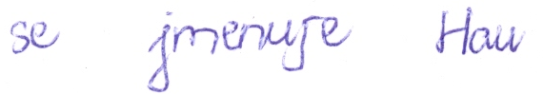 se jmenuje Hau